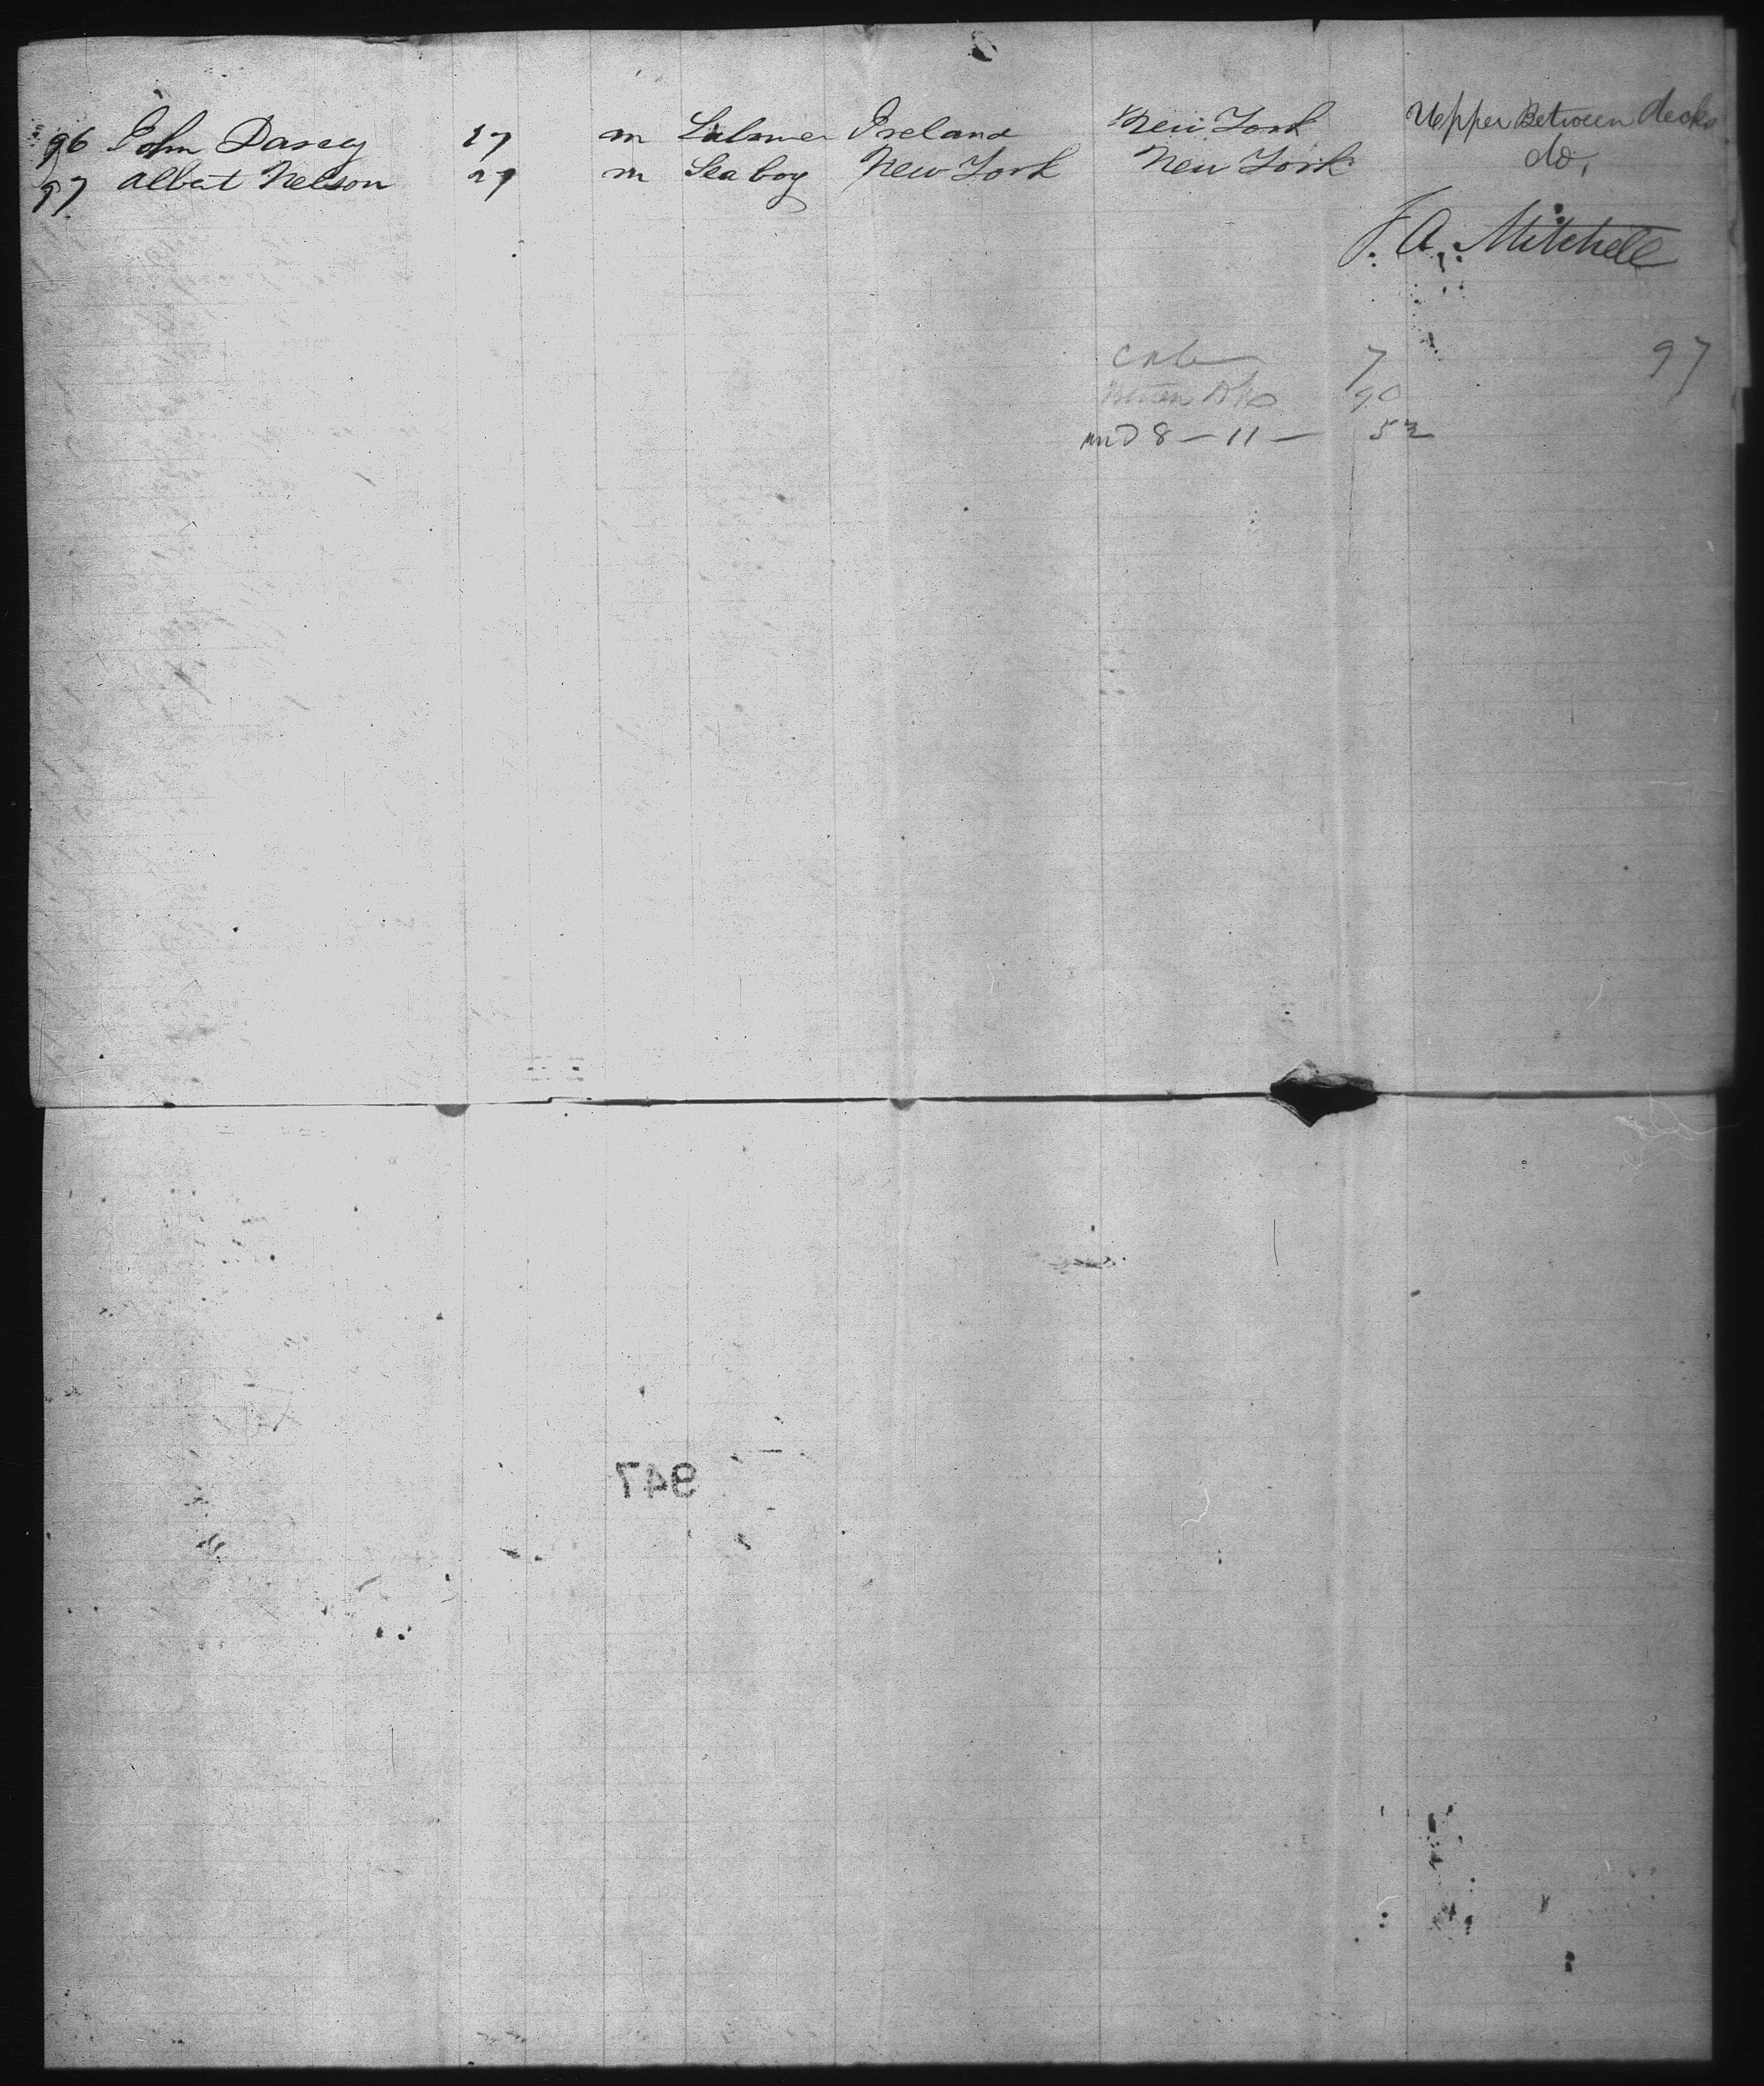 96 John Darcy 27 m Labourer Ireland New York Upper Between decks
97 Albert Nelson 27 m Sea boy New York New York do.
J. A. Mitchell
7 97
90
8 - 11 - 52
947